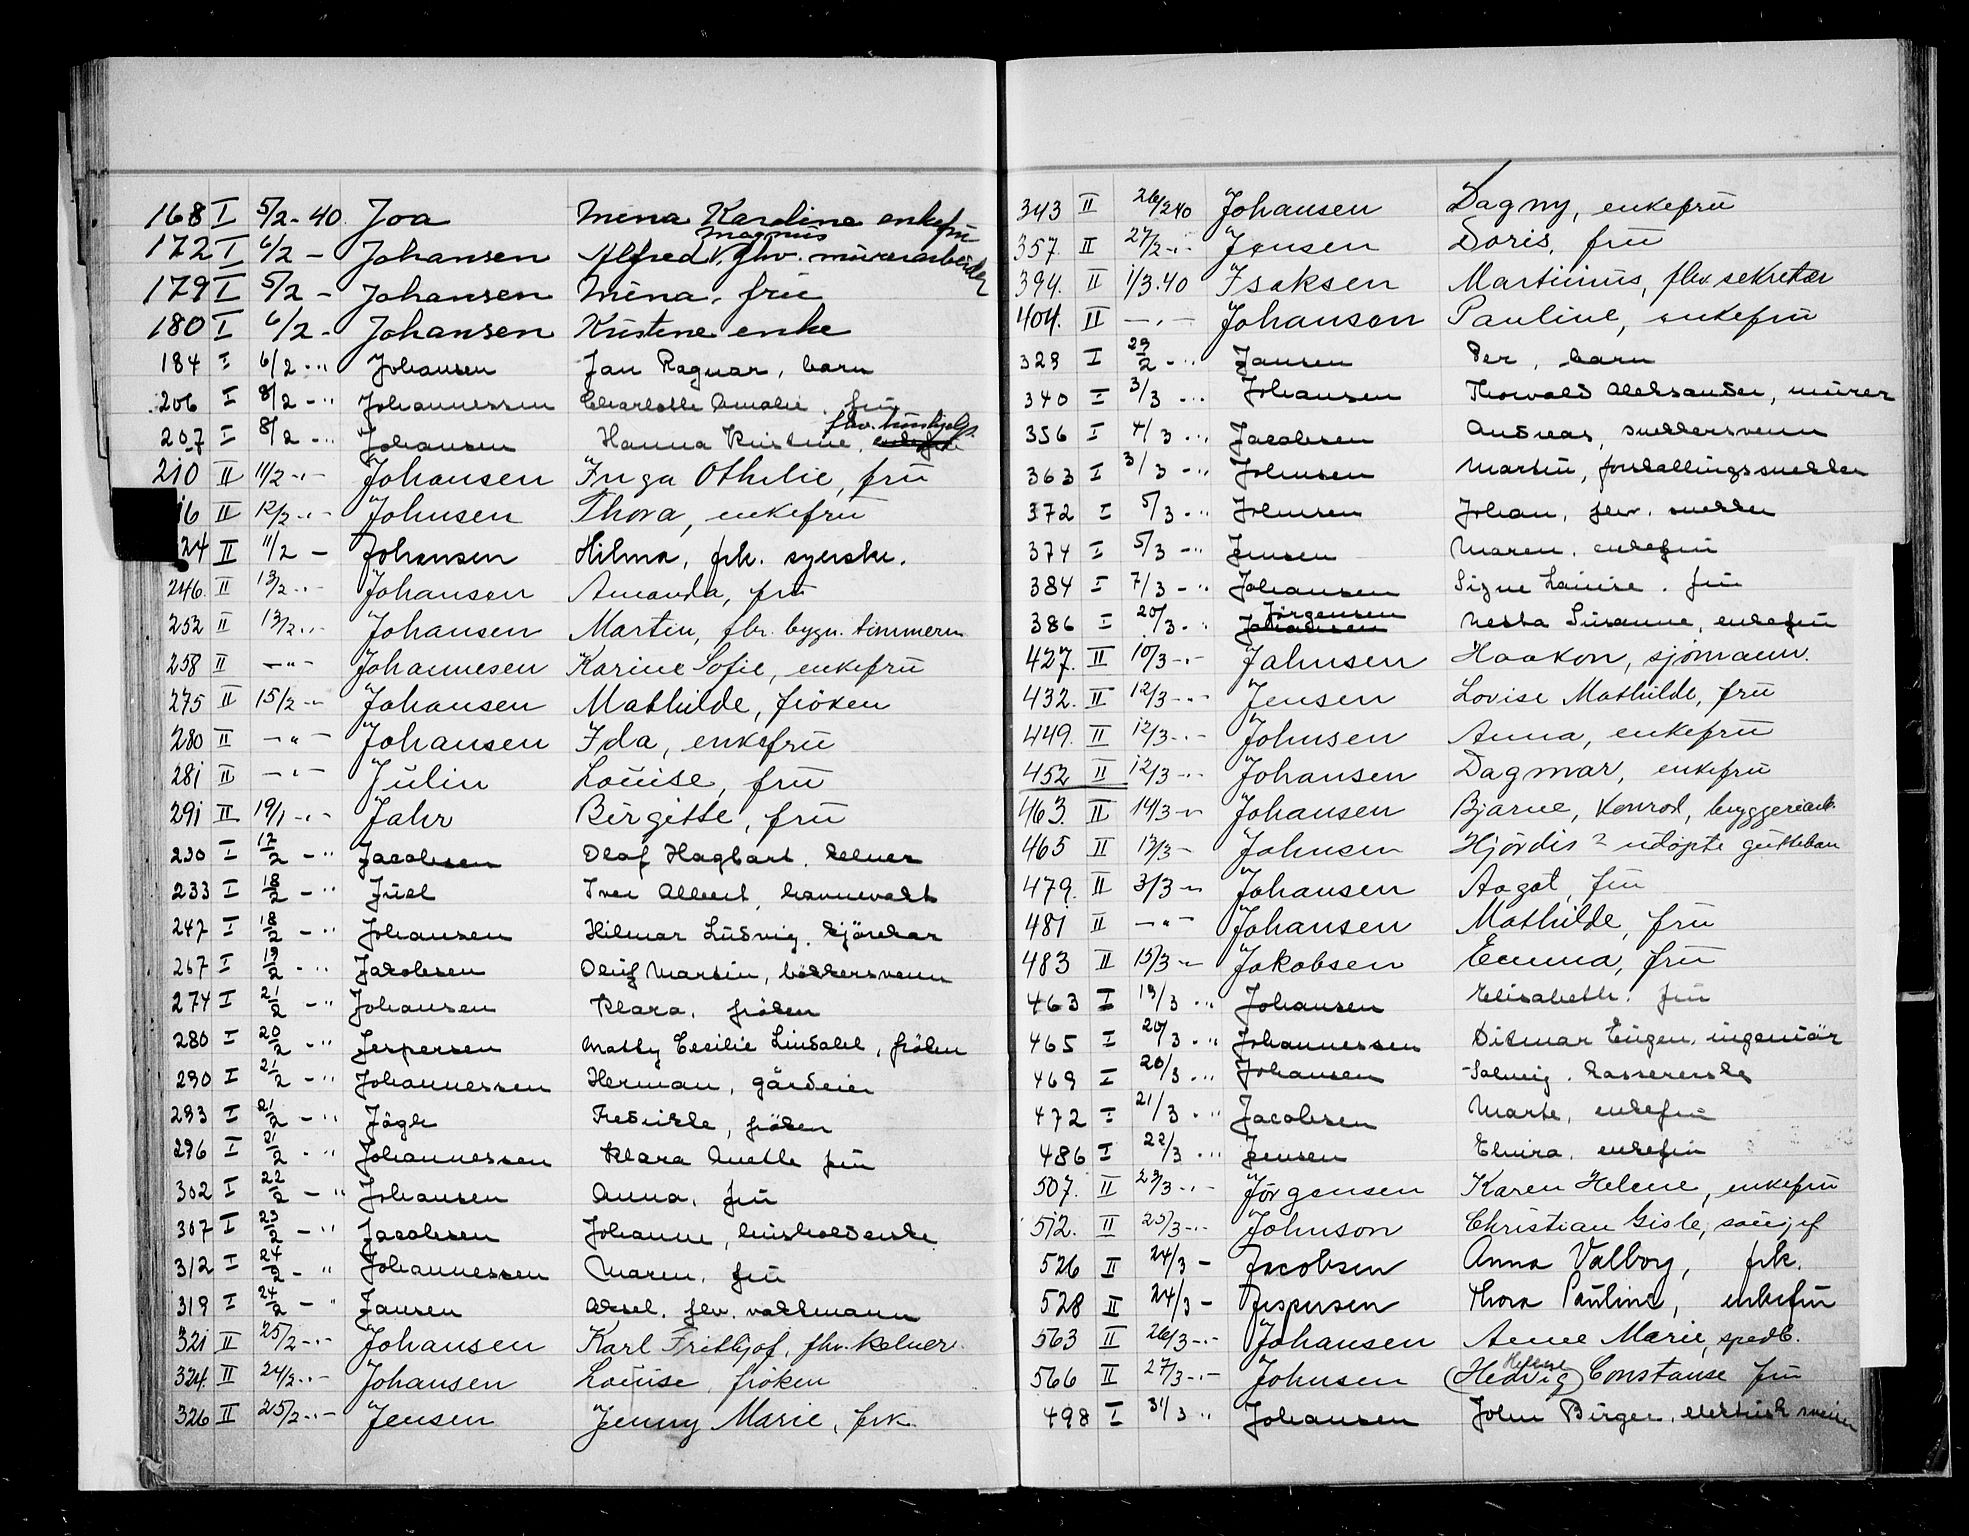 168 I 5/2-40. Joa Mina Karoline enkefru
172 I 6/2 - Johansen Alfred Magnus V. fhv. murerarbeider
179 I 5/2 - Johansen Mina, fru
180 I 6/2 - Johansen Kristine enke
184 I 6/2 -" Johansen Jan Ragnar, barn
206 I 8/2 -" Johannessen Charlotte Amalie, fru
207 I 8/2 -" Johansen Hanna Kristine, fhv. hushjelp. enkefru
210 II 11/2 -"- Johansen Inga Othilie, frü
16 II 12/2 -"- Johnsen Thora, enkefrü
24 II 11/2 - Johansen Hilma, frk. syerske.
246. II 13/2 -"- Johansen Amanda, frü
252 II 13/2 -"- Johansen Martin, fhv. bygn. tømmerm
258 II -"- Johannesen Karine Sofie, enkefrü
275 II 15/2 -"- Johansen Mathilde, fröken
280 II -"- Johansen Ida, enkefrü
281 II -"- Julin Louise, frü
291 II 19/1 -"- Jahr Birgitte, frü
230 I 17/2 -" Jacobsen Olaf Hagbart, kelner
233 I 18/2 -" Juel Iver Albert,
247 I 18/2 -" Johansen Hilmar Ludvig, kjörekar
267 I 19/2 -" Jakobsen Oluf Martin, bökkersvenn
274 I 21/2 -" Johansen Klara, fröken
280 I 20/2 -" Jespersen Mally Cecilie Lindahl, fröken
290 I 21/2 -" Johannessen Herman, gårdeier
293 I 21/2 -" Jägle Fredrikke, fröken
296 I 21/2 -" Johannessen Klara Anette fru
302 I 22/2 -" Johansen Anna, fru
307 I 23/2 -" Jacobsen Johanne, husholderske
312 I 24/2 -" Johannessen Maren, fru
319 I 24/2 -" Jansen Aksel, fhv. vaktmann
321 II 25/2 -"- Johansen Karl Frithjof, fhv. kelner
324. II 24/2 -"- Johansen Louise, fröken
326 II 25/2 -"- Jensen Jenny Marie, frk.
343 II 26/2 40 Johansen Dagny, enkefrü
357. II 27/2 -"- Jensen Doris, frü
394. II 1/3.40 Isaksen Martinius, fhv. sekretær
404. II -"- Johansen Pauline, enkefrü
329 I 29/2 -" Jansen Per, barn
340 I 3/3 -" Johansen Thorvald Aleksander, murer
356 I 4/3 -" Jacobsen Andreas, snekkersvenn
363 I 3/3 -" Johnsen Martin, forskallingssnekker
372 I 5/3 -" Johnsen Johan, fhv. snekker
374 I 5/3 -" Jensen Maren, enkefru
384 I 7/3 -" Johansen Signe Louise, fru
386 I 20/3 -" Jörgensen Johansen Susanne, enkefru
427. II 10/3 -"- Johnsen Haakon, sjømann.
432. II 12/3 -"- Jensen Lovise Mathilde, frü
449. II 12/3 -"- Johnsen Anna, enkefrü
452 II 12/3 -"- Johansen Dagmar, enkefrü
463. II 14/3 -"- Johansen Bjarne, Konrad, bryggeriarb.
465 II 13/3 - Johnsen Hjördis 2 udöpte guttebarn
479. II 3/3 -"- Johansen Aagot, frü
481 II -"- Johansen Mathilde, frü
483 II 15/3 -"- Jakobsen Emma, frü
463 I 19/3 -" Johansen Elisabeth, fru
465 I 20/3 -" Johannessen Ditmar Eugen, ingeniör
469 I 20/3 -" Johansen Solveig, kassererske
472 I 21/3 -" Jacobsen Marte, enkefru
486 I 22/3 -" Jensen Elvira, enkefru
507. II 23/3 -"- Jörgensen Karen Helene, enkefrü
512. II 25/3 -"- Johnson Christian Gisle,
526 II 24/3 - Jacobsen Anna Valborg, frk.
528 II 24/3 - Jespersen Thora Pauline, enkefru
563 II 26/3 -"- Johansen Anne Marie, spedb.
566 II 27/3 -"- Johnsen (Hedvig) Helene Constanse frü
498 I 31/3 " Johansen John Birger,